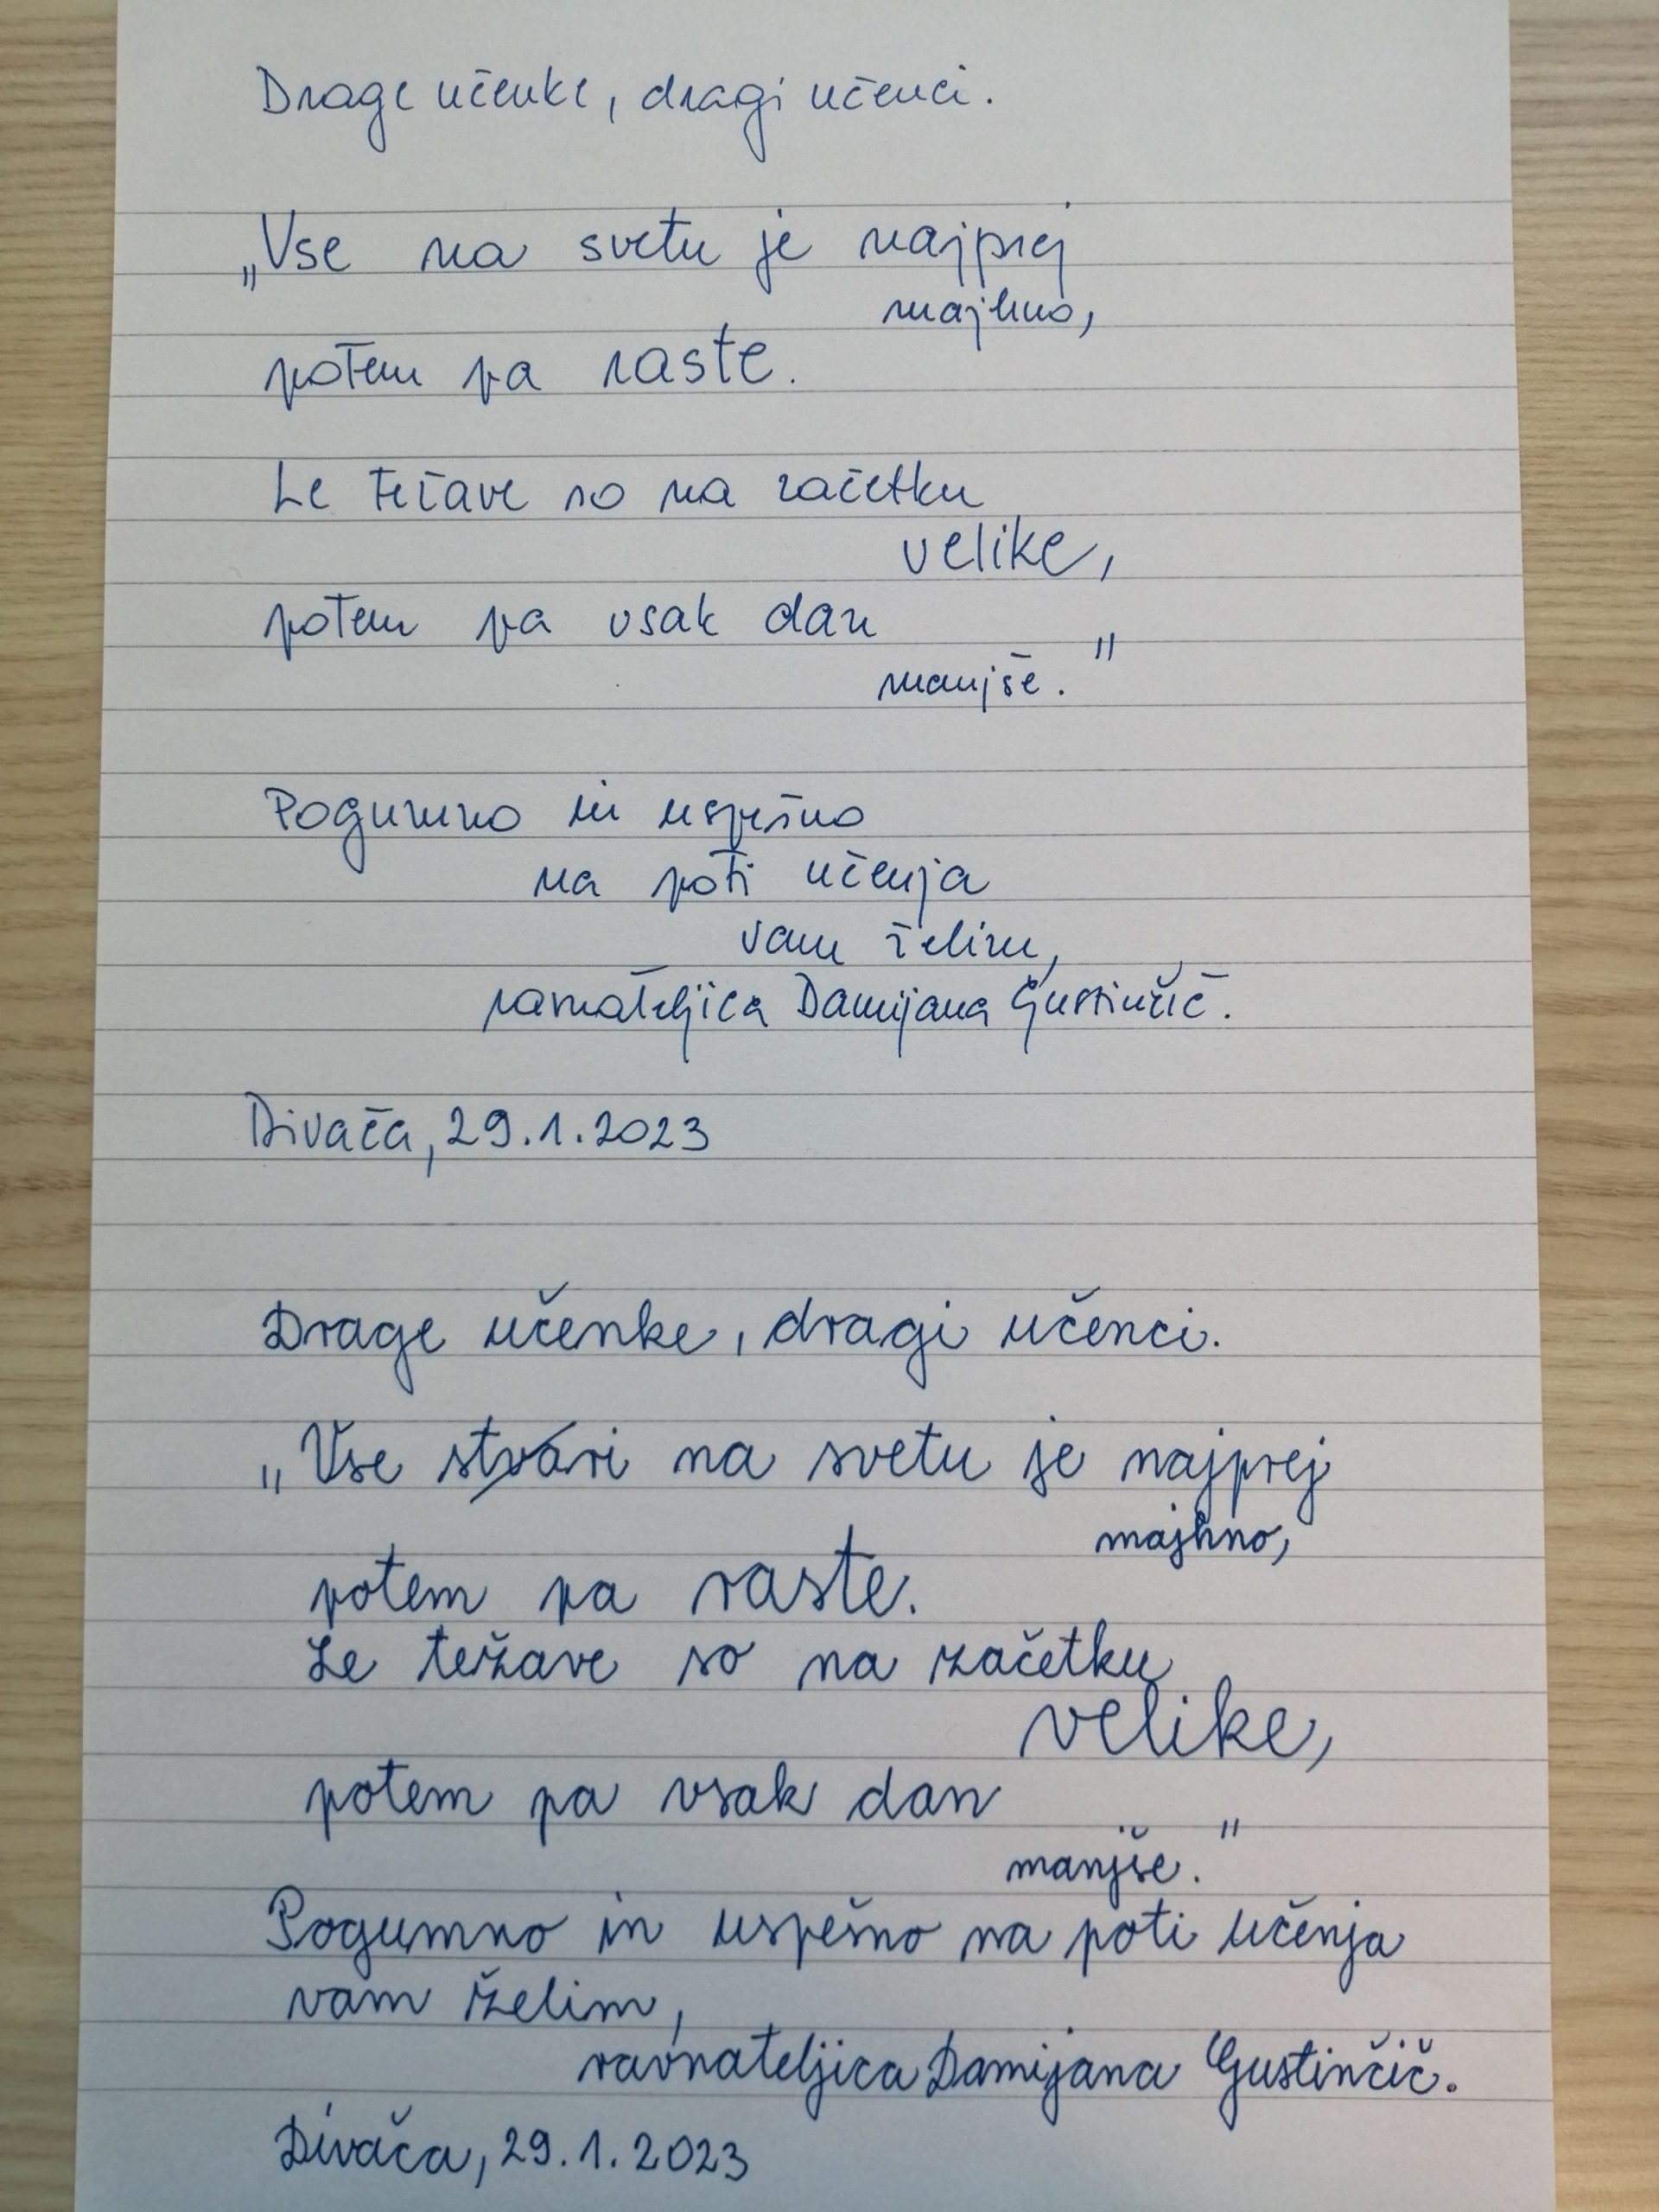 Drage učenke, dragi učenci.
„Vse na svetu je najprej
majhno,
potem pa raste.
Le težave so na začetku
velike,
potem pa vsak dan
manjše."
Pogumno in uspešno
na poti učenja
vam želim,
ravnateljica Damijana Gustinčič.
Divača, 29.1.2023
Drage učenke, dragi učenci.
„Vse stvari na svetu je najprej
majhno,
potem pa raste.
Le težave so na začetku
velike,
potem pa vsak dan
manjše."
Pogumno in uspešno na poti učenja
vam želim,
ravnateljica Damijana Gustinčič.
Divača, 29.1.2023